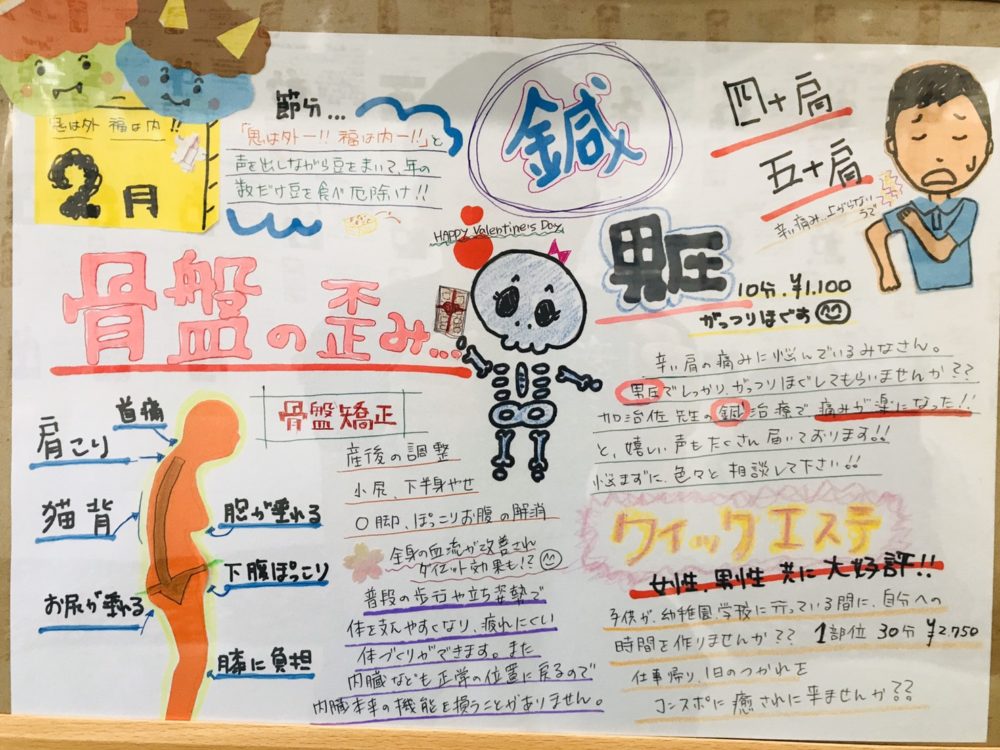 鬼は外 福は内!!
2月
節分...
「鬼は外ー!! 福は内ー!!」と
声を出しながら豆をまいて、年の
数だけ豆を食べ厄除け!!
鍼
四十肩
五十肩
辛い痛み、上がらない
うで
HAPPY Valentine's Day
男圧
10分.¥1.100
がっつりほぐす
骨盤の歪み...
辛い肩の痛みに悩んでいるみなさん。
男圧でしっかりがっつりほぐしてもらいませんか??
加治佐先生の鍼治療で痛みが楽になった!!
と、嬉しい声もたくさん届いております!!
悩まずに、色々と相談して下さい!!
首痛
肩こり
猫背
胸が垂れる
下腹ぽっこり
お尻が垂れる
膝に負担
骨盤矯正
産後の調整
小尻、下半身やせ
O脚、ぽっこりお腹の解消
全身の血流が改善され
ダイエット効果も!?
普段の歩行や立ち姿勢で
体を支えやすくなり、疲れにくい
体づくりができます。また
内臓なども正常の位置に戻るので
内臓本来の機能を損うことがありません。
クイックエステ
女性、男性 共に大好評!!
子供が、幼稚園、学校に行っている間に、自分への
時間を作りませんか?? 1部位 30分 ¥2.750
仕事帰り、1日のつかれを
コンスポに癒されに来ませんか??